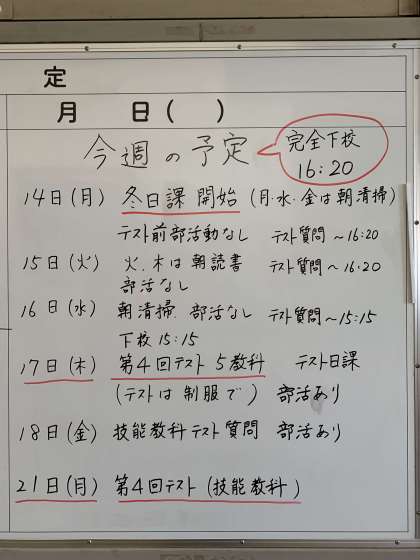 定
月 日( )
今週の予定
完全下校
16:20
14日(月) 冬日課開始 (月・水・金は朝清掃)
テスト前部活動なし テスト質問~16:20
15日(火) 火、木は朝読書 テスト質問~16:20
部活なし
16日(水) 朝清掃 部活なし テスト質問~15:15
下校15:15
17日(木) 第4回テスト5教科 テスト日課
(テストは制服で) 部活あり
18日(金) 技能教科テスト質問 部活あり
21日(月) 第4回テスト(技能教科)